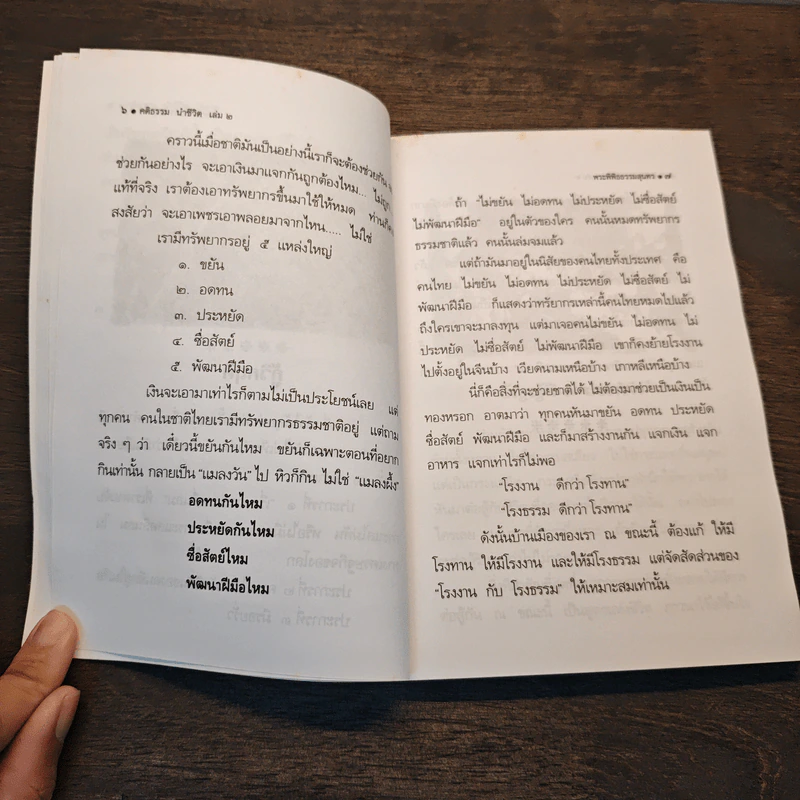 ๖ ● คติธรรม นำชีวิต เล่ม ๒
คราวนี้เมื่อชาติมันเป็นอย่างนี้เราก็จะต้องช่วยกัน
ช่วยกันอย่างไร จะเอาเงินมาแจกกันถูกต้องไหม... ไม่ถูก
แท้ที่จริง เราต้องเอาทรัพยากรขึ้นมาใช้ให้หมด
สงสัยว่า จะเอาเพชรเอาพลอยมาจากไหน..... ไม่ใช่
เรามีทรัพยากรอยู่ ๕ แหล่งใหญ่
๑. ขยัน
๒. อดทน
๓. ประหยัด
๔. ซื่อสัตย์
๕. พัฒนาฝีมือ
เงินจะเอามาเท่าไรก็ตามไม่เป็นประโยชน์เลย แต่
ทุกคน คนในชาติไทยเรามีทรัพยากรธรรมชาติอยู่ แต่ถาม
จริง ๆ ว่า เดี๋ยวนี้ขยันกันไหม ขยันก็เฉพาะตอนที่อยาก
กินเท่านั้น กลายเป็น "แมลงวัน" ไป หิวก็กิน ไม่ใช่ "แมลงผึ้ง"
อดทนกันไหม
ประหยัดกันไหม
ซื่อสัตย์ไหม
พัฒนาฝีมือไหม
พระพิพิธธรรมสุนทร ● ๗
ถ้า "ไม่ขยัน ไม่อดทน ไม่ประหยัด ไม่ซื่อสัตย์
ไม่พัฒนาฝีมือ" อยู่ในตัวของใคร คนนั้นหมดทรัพยากร
ธรรมชาติแล้ว คนนั้นล่มจมแล้ว
แต่ถ้ามันมาอยู่ในนิสัยของคนไทยทั้งประเทศ คือ
คนไทย ไม่ขยัน ไม่อดทน ไม่ประหยัด ไม่ซื่อสัตย์ ไม่
พัฒนาฝีมือ ก็แสดงว่าทรัยากรเหล่านี้คนไทยหมดไปแล้ว
ถึงใครเขาจะมาลงทุน แต่มาเจอคนไม่ขยัน ไม่อดทน ไม่
ประหยัด ไม่ซื่อสัตย์ ไม่พัฒนาฝีมือ เขาก็คงย้ายโรงงาน
ไปตั้งอยู่ในจีนบ้าง เวียดนามเหนือบ้าง เกาหลีเหนือบ้าง
นี่ก็คือสิ่งที่จะช่วยชาติได้ ไม่ต้องมาช่วยเป็นเงินเป็น
ทองหรอก อาตมาว่า ทุกคนหันมาขยัน อดทน ประหยัด
ซื่อสัตย์ พัฒนาฝีมือ และก็มาสร้างงานกัน แจกเงิน แจก
อาหาร แจกเท่าไรก็ไม่พอ
"โรงงาน ดีกว่า โรงทาน"
"โรงธรรม ดีกว่า โรงทาน"
ดังนั้นบ้านเมืองของเรา ณ ขณะนี้ ต้องแก้ ให้มี
โรงทาน ให้มีโรงงาน และให้มีโรงธรรม แต่จัดสัดส่วนของ
"โรงงาน กับ โรงธรรม" ให้เหมาะสมเท่านั้น